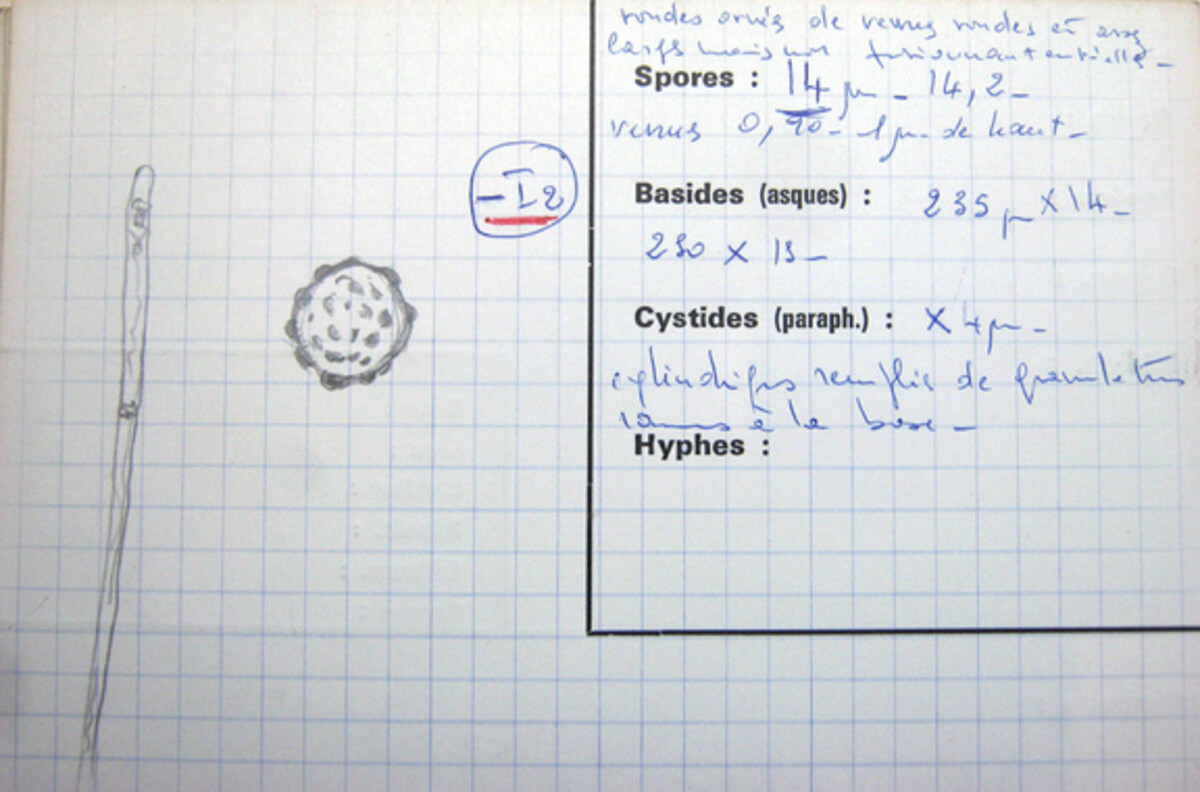 rondes ornés de verrues rondes et assez
larges mais non fusionnant entre elles -
Spores : 14 µm - 14,2 -
verrues 0,90 - 1 µm de haut -
- I2
Basides (asques) : 235 µ × 14 -
230 × 13 -
Cystides (paraph.) : × 4 µm -
cylindriques remplis de granulations
à la base -
Hyphes :